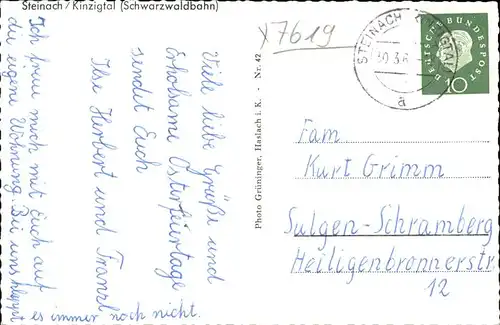 Steinach / Kinzigtal (Schwarzwaldbahn)
X7619
Viele liebe Grüße und
Erholsame Osterfeiertage
sendet Euch
Ilse Herbert und Franzl
Ich freu mich mit Euch auf
die eigene Wohnung. Bei uns klappt
es immer noch nicht.
Photo Grüninger, Haslach i. K. - Nr. 42
STEINACH
a
DEUTSCHE BUNDESPOST
10
Fam
Kurt Grimm
Sulgen-Schramberg
Heiligenbronnerstr
12